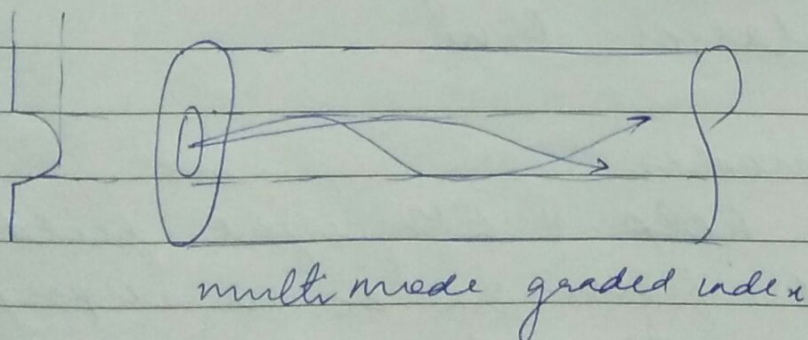 multi mode graded index